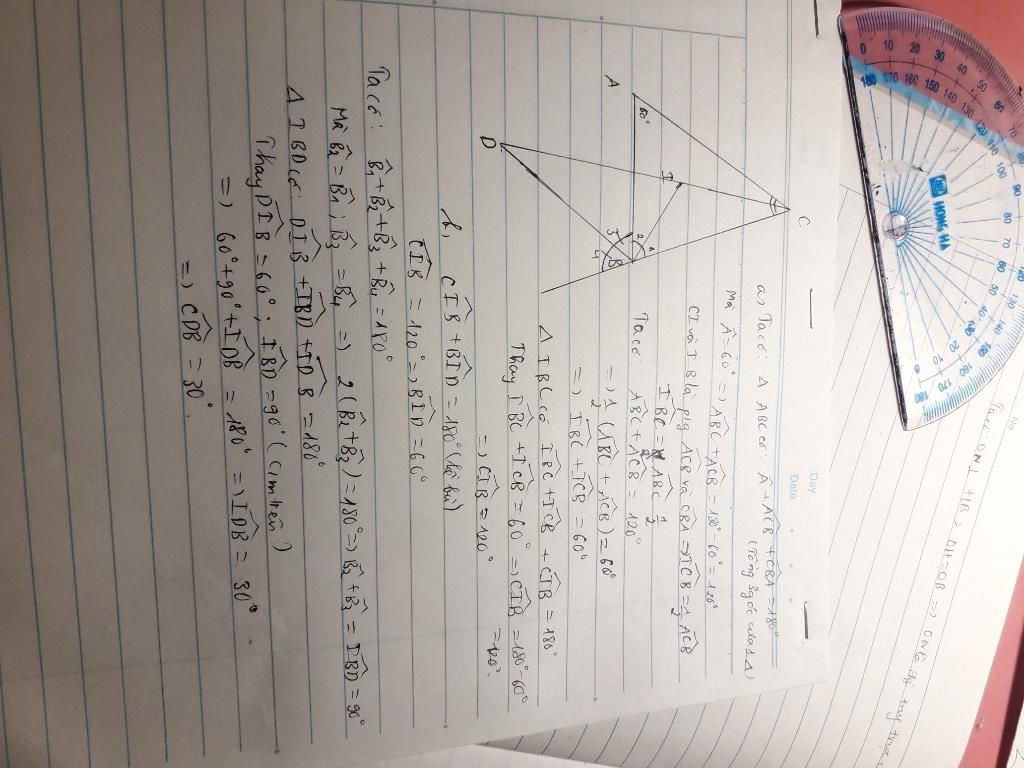 Day
Date
a, Ta có: Δ ABC có: Â + ACB̂ + CBÂ = 180°
(Tổng 3 góc của 1 Δ)
Mà Â = 60° => ABĈ + ACB̂ = 180° - 60° = 120°
CI và IB là p/g ACB̂ và CBÂ => ICB̂ = 1/2 ACB̂
IBĈ = ABĈ 1/2
Ta có: ABĈ + ACB̂ = 120°
=> 1/2 (ABĈ + ACB̂) = 60°
=> IBĈ + ICB̂ = 60°
Δ IBC có IBĈ + ICB̂ + CIB̂ = 180°
Thay IBĈ + ICB̂ = 60° => CIB̂ = 180° - 60°
= 120°.
=> CIB̂ = 120°
b, CIB̂ + BID̂ = 180° (kề bù)
CIB̂ = 120° => BID̂ = 60°
Ta có: B̂1 + B̂2 + B̂3 + B̂4 = 180°
Mà B̂2 = B̂1; B̂3 = B̂4 => 2(B̂2 + B̂3) = 180° => B̂2 + B̂3 = IBD̂ = 90°
Δ IBD có: DIB̂ + IBD̂ + IDB̂ = 180°
Thay DIB̂ = 60°; IBD̂ = 90° (cm trên)
=> 60° + 90° + IDB̂ = 180° => IDB̂ = 30°
=> CDB̂ = 30°.
A
60°
D
I
C
B
1
2
3
4
HONG HA
0 10 20 30 40 50 60 70
180 170 160 150 140 130 120